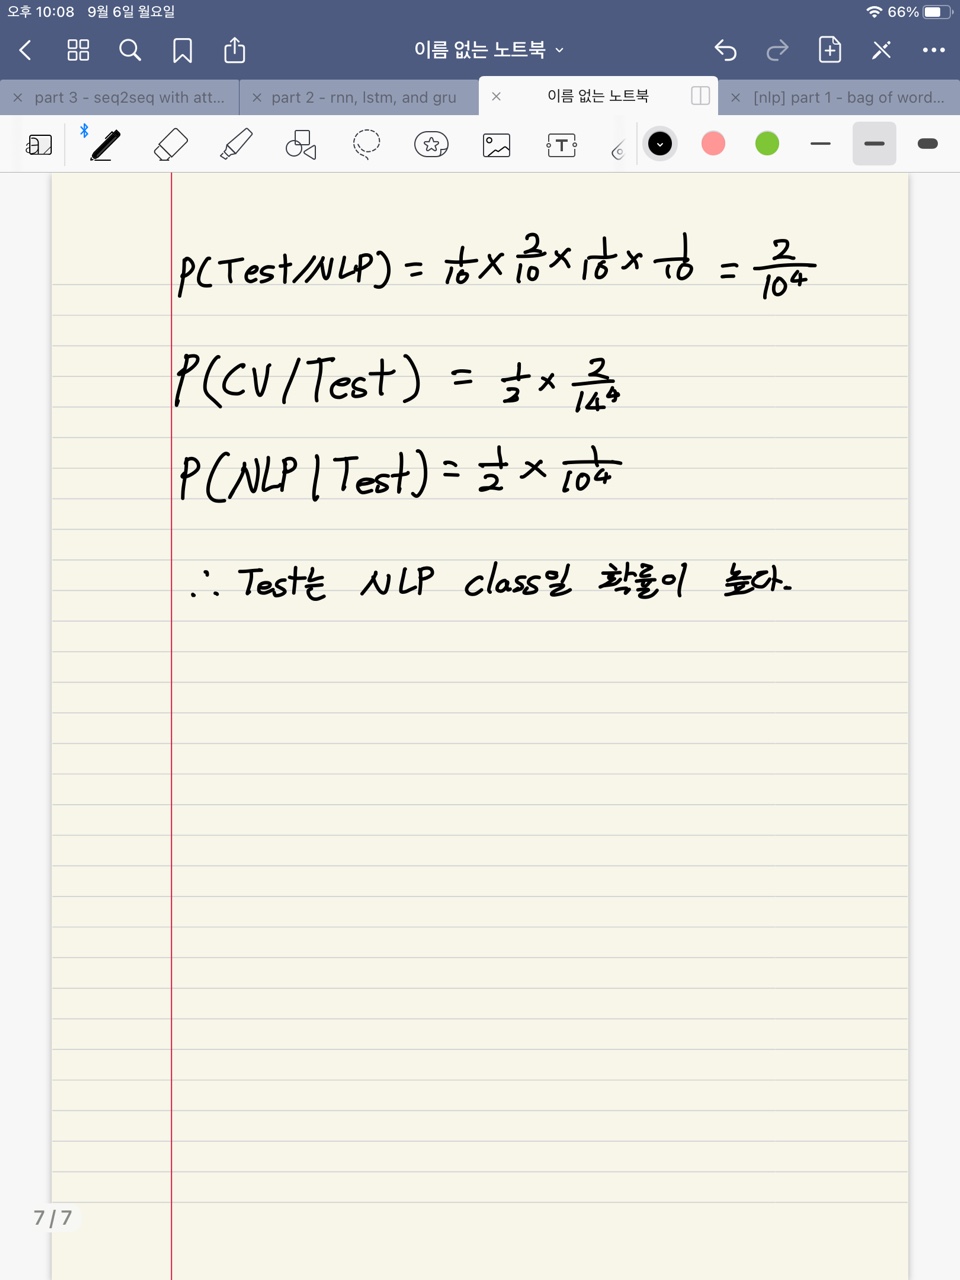 오후 10:08 9월 6일 월요일 66%
이름 없는 노트북
part 3 - seq2seq with att...
part 2 - rnn, lstm, and gru
이름 없는 노트북
[nlp] part 1 - bag of word...
P(Test//NLP) = 1/10 × 2/10 × 1/10 × 1/10 = 2/10⁴
P(CV/Test) = 1/2 × 2/14⁴
P(NLP|Test) = 1/2 × 1/10⁴
∴ Test는 NLP class일 확률이 높다.
7 / 7